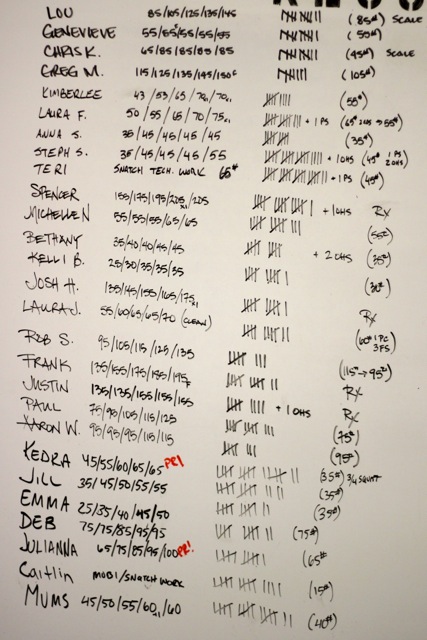 LOU 85/105/125/135/145 (85#) SCALE
GENEVIEVE 55/55/55/55/55 (55#)
CHRIS K. 65/85/85/85/85 (45#) SCALE
GREG M. 115/125/135/145/150 (105#)
KIMBERLEE 43/53/65/70/70 (55#)
LAURA F. 50/55/65/70/75 + 1 PS
ANNA S. 35/45/45/45/45 (35#)
STEPH S. 35/45/45/45/55 + 1 OHS (45# 1 PS 2 OHS)
TERI SNATCH TECH. WORK 65# + 1 PS (45#)
SPENCER 155/175/195/205/205 + 1 OHS Rx
MICHELLE N 55/55/55/65/65 (55#)
BETHANY 35/40/40/45/45 + 2 OHS (35#)
KELLI B. 25/30/35/35/35 (30#)
JOSH H. 135/145/155/165/175 Rx
LAURA J. 55/60/65/65/70 (CLEAN) (60# 1 PC 3 FS)
ROB S. 95/105/115/125/135 (115#→95#)
FRANK 135/155/175/185/195 Rx
JUSTIN 135/135/155/155/155 Rx
PAUL 75/95/105/115/125 + 1 OHS (75#)
AARON W. 95/95/95/115/115 (95#)
KEDRA 45/55/60/65/65 PR! (35#) 3/4 SQUAT
JILL 35/45/50/55/55 (35#)
EMMA 25/35/40/45/50 (35#)
DEB 75/75/85/95/95 (75#)
JULIANNA 65/75/85/95/100 PR! (65#)
Caitlin MOBI/SNATCH WORK (15#)
MUMS 45/50/55/60/60 (40#)